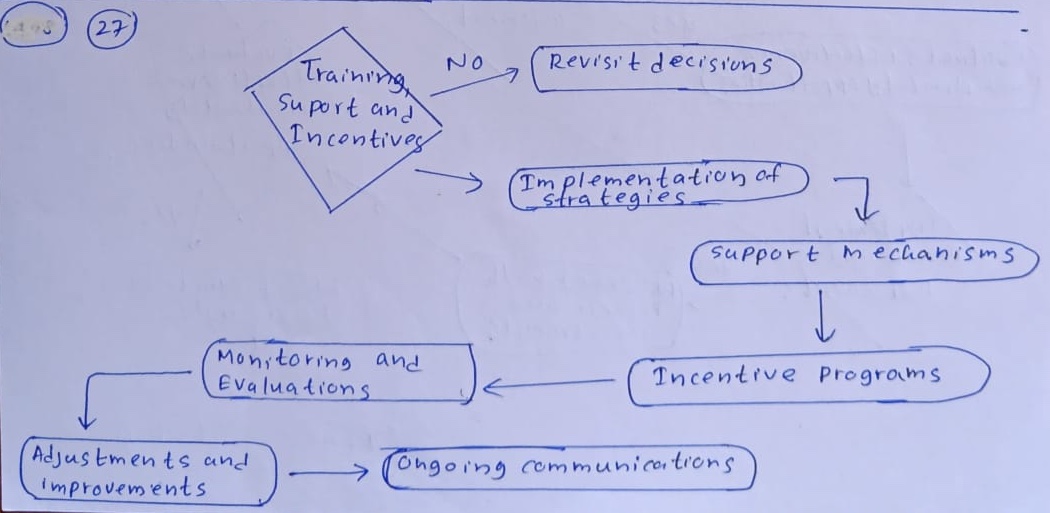 27
Training,
Suport and
Incentives
NO
Revisit decisions
Implementation of
strategies
Support mechanisms
Incentive programs
Monitoring and
Evaluations
Adjustments and
improvements
Ongoing communications